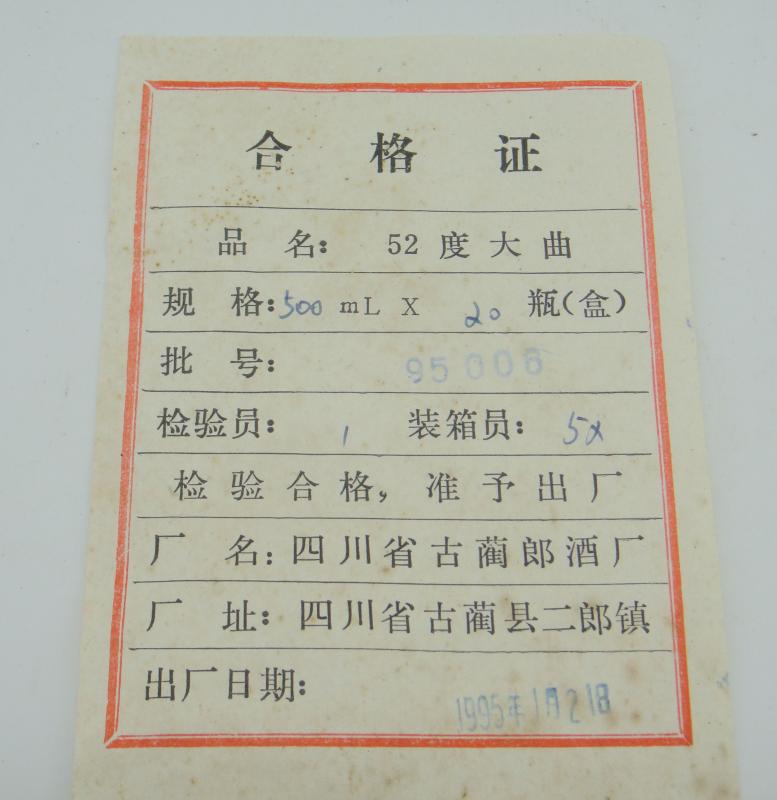 合格证
品名: 52度大曲
规格:500mL X 20瓶(盒)
批号: 95006
检验员: 1 装箱员: 5x
检验合格,准予出厂
厂名:四川省古蔺郎酒厂
厂址:四川省古蔺县二郎镇
出厂日期: 1995年1月21日